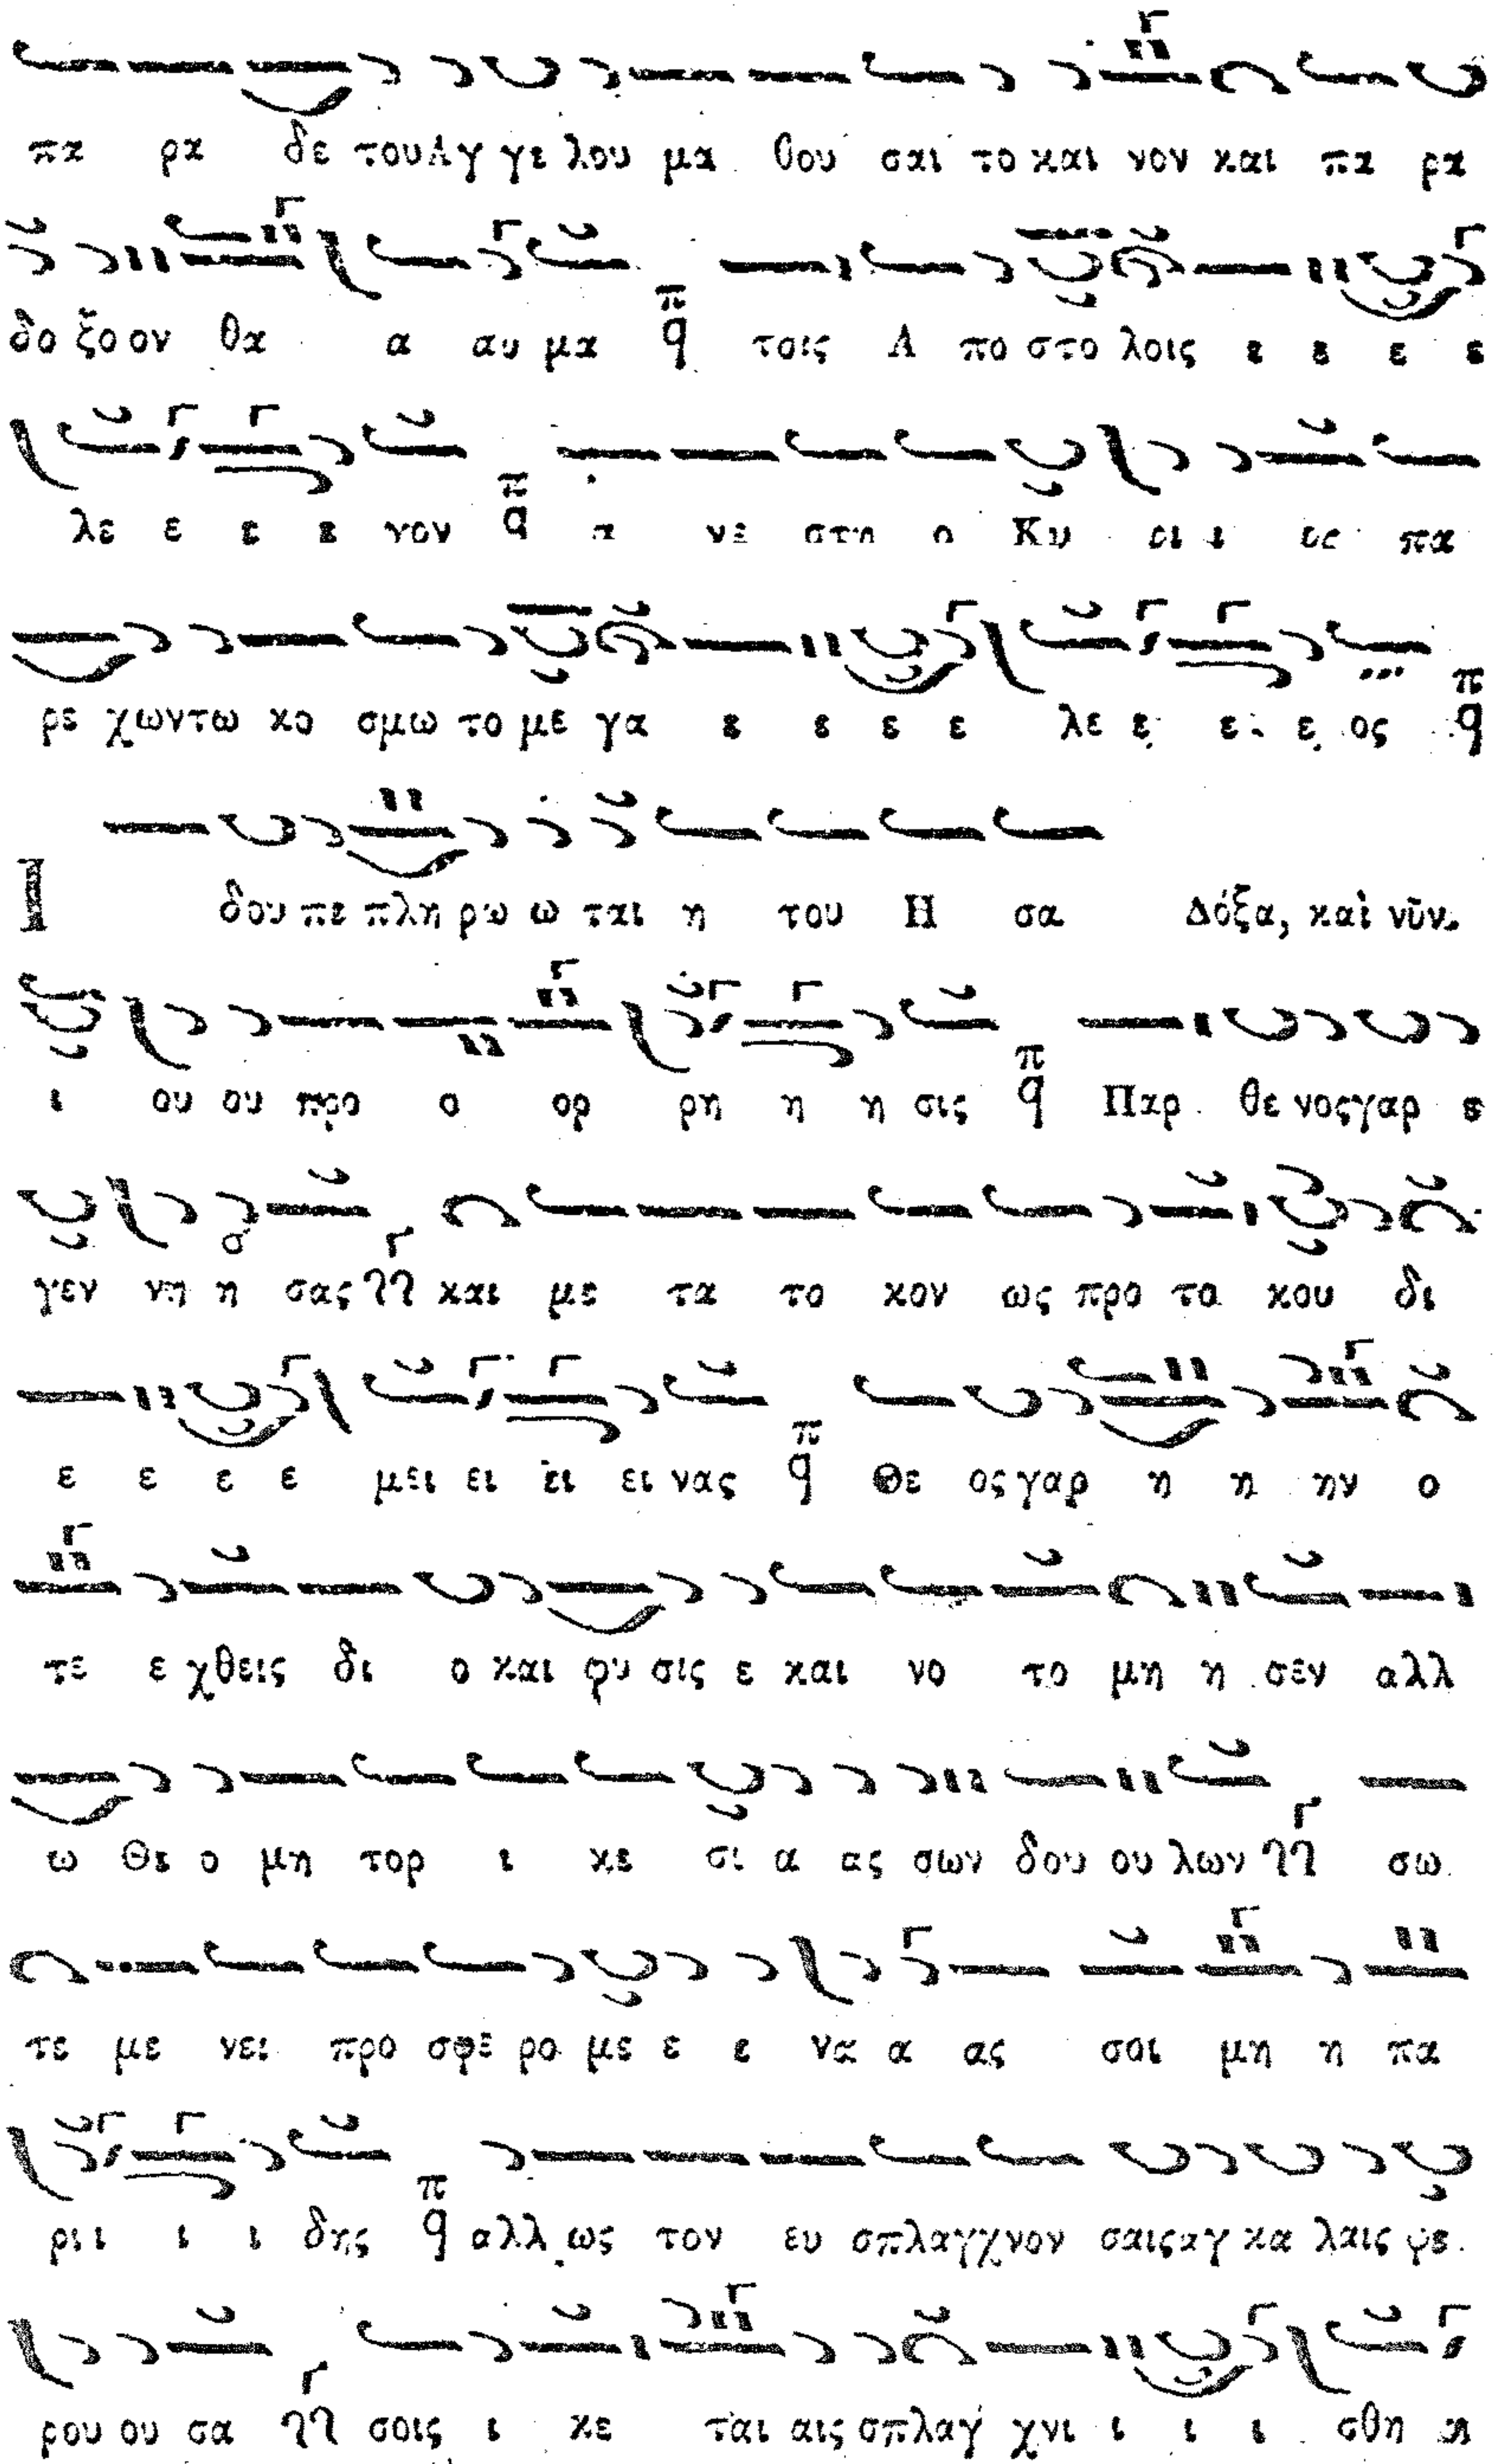 πα ρα δε του Αγ γε λου μα θου σαι το και νον και πα ρα
δο ξο ον θα α αυ μα π q τοις Α πο στο λοις ε ε ε ε
λε ε ε ε γον π q α νε στη ο Κυ ρι ι ος πα
ρε χων τω κο σμω το με γα ε ε ε ε λε ε ε ε ος π q
Ι δου πε πλη ρω ω ται η του Η σα Δόξα, καὶ νῦν.
ι ου ου προ ο ορ ρη η η σις π q Παρ θε νος γαρ ε
γεν νη η σας και με τα το κον ως προ το κου δι
ε ε ε ε μει ει ει ει νας π q Θε ος γαρ η η ην ο
τε ε χθεις δι ο και φυ σις ε και νο το μη η σεν αλλ
ω Θε ο μη τορ ι κε σι α ας σων δου ου λων σω
τε με νει προ σφε ρο με ε ε να α ας σοι μη η πα
ρι ι ι ι δης π q αλλ ως τον ευ σπλαγχνον σαις αγ κα λαις φε
ρου ου σα σοις ι κε ται αις σπλαγ χνι ι ι ι σθη η